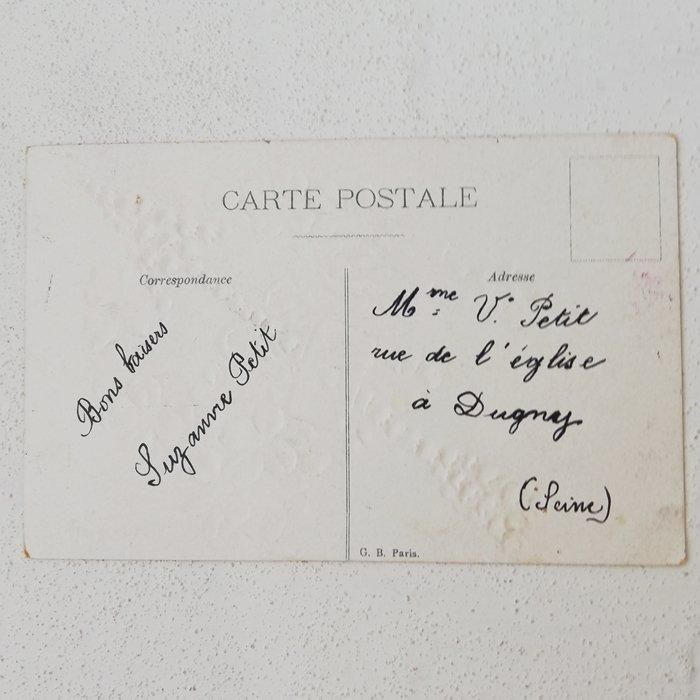 CARTE POSTALE
Correspondance
Bons baisers
Suzanne Petit
Adresse
Mme V. Petit
rue de l'église
à Dugny
(Seine)
G. B. Paris.